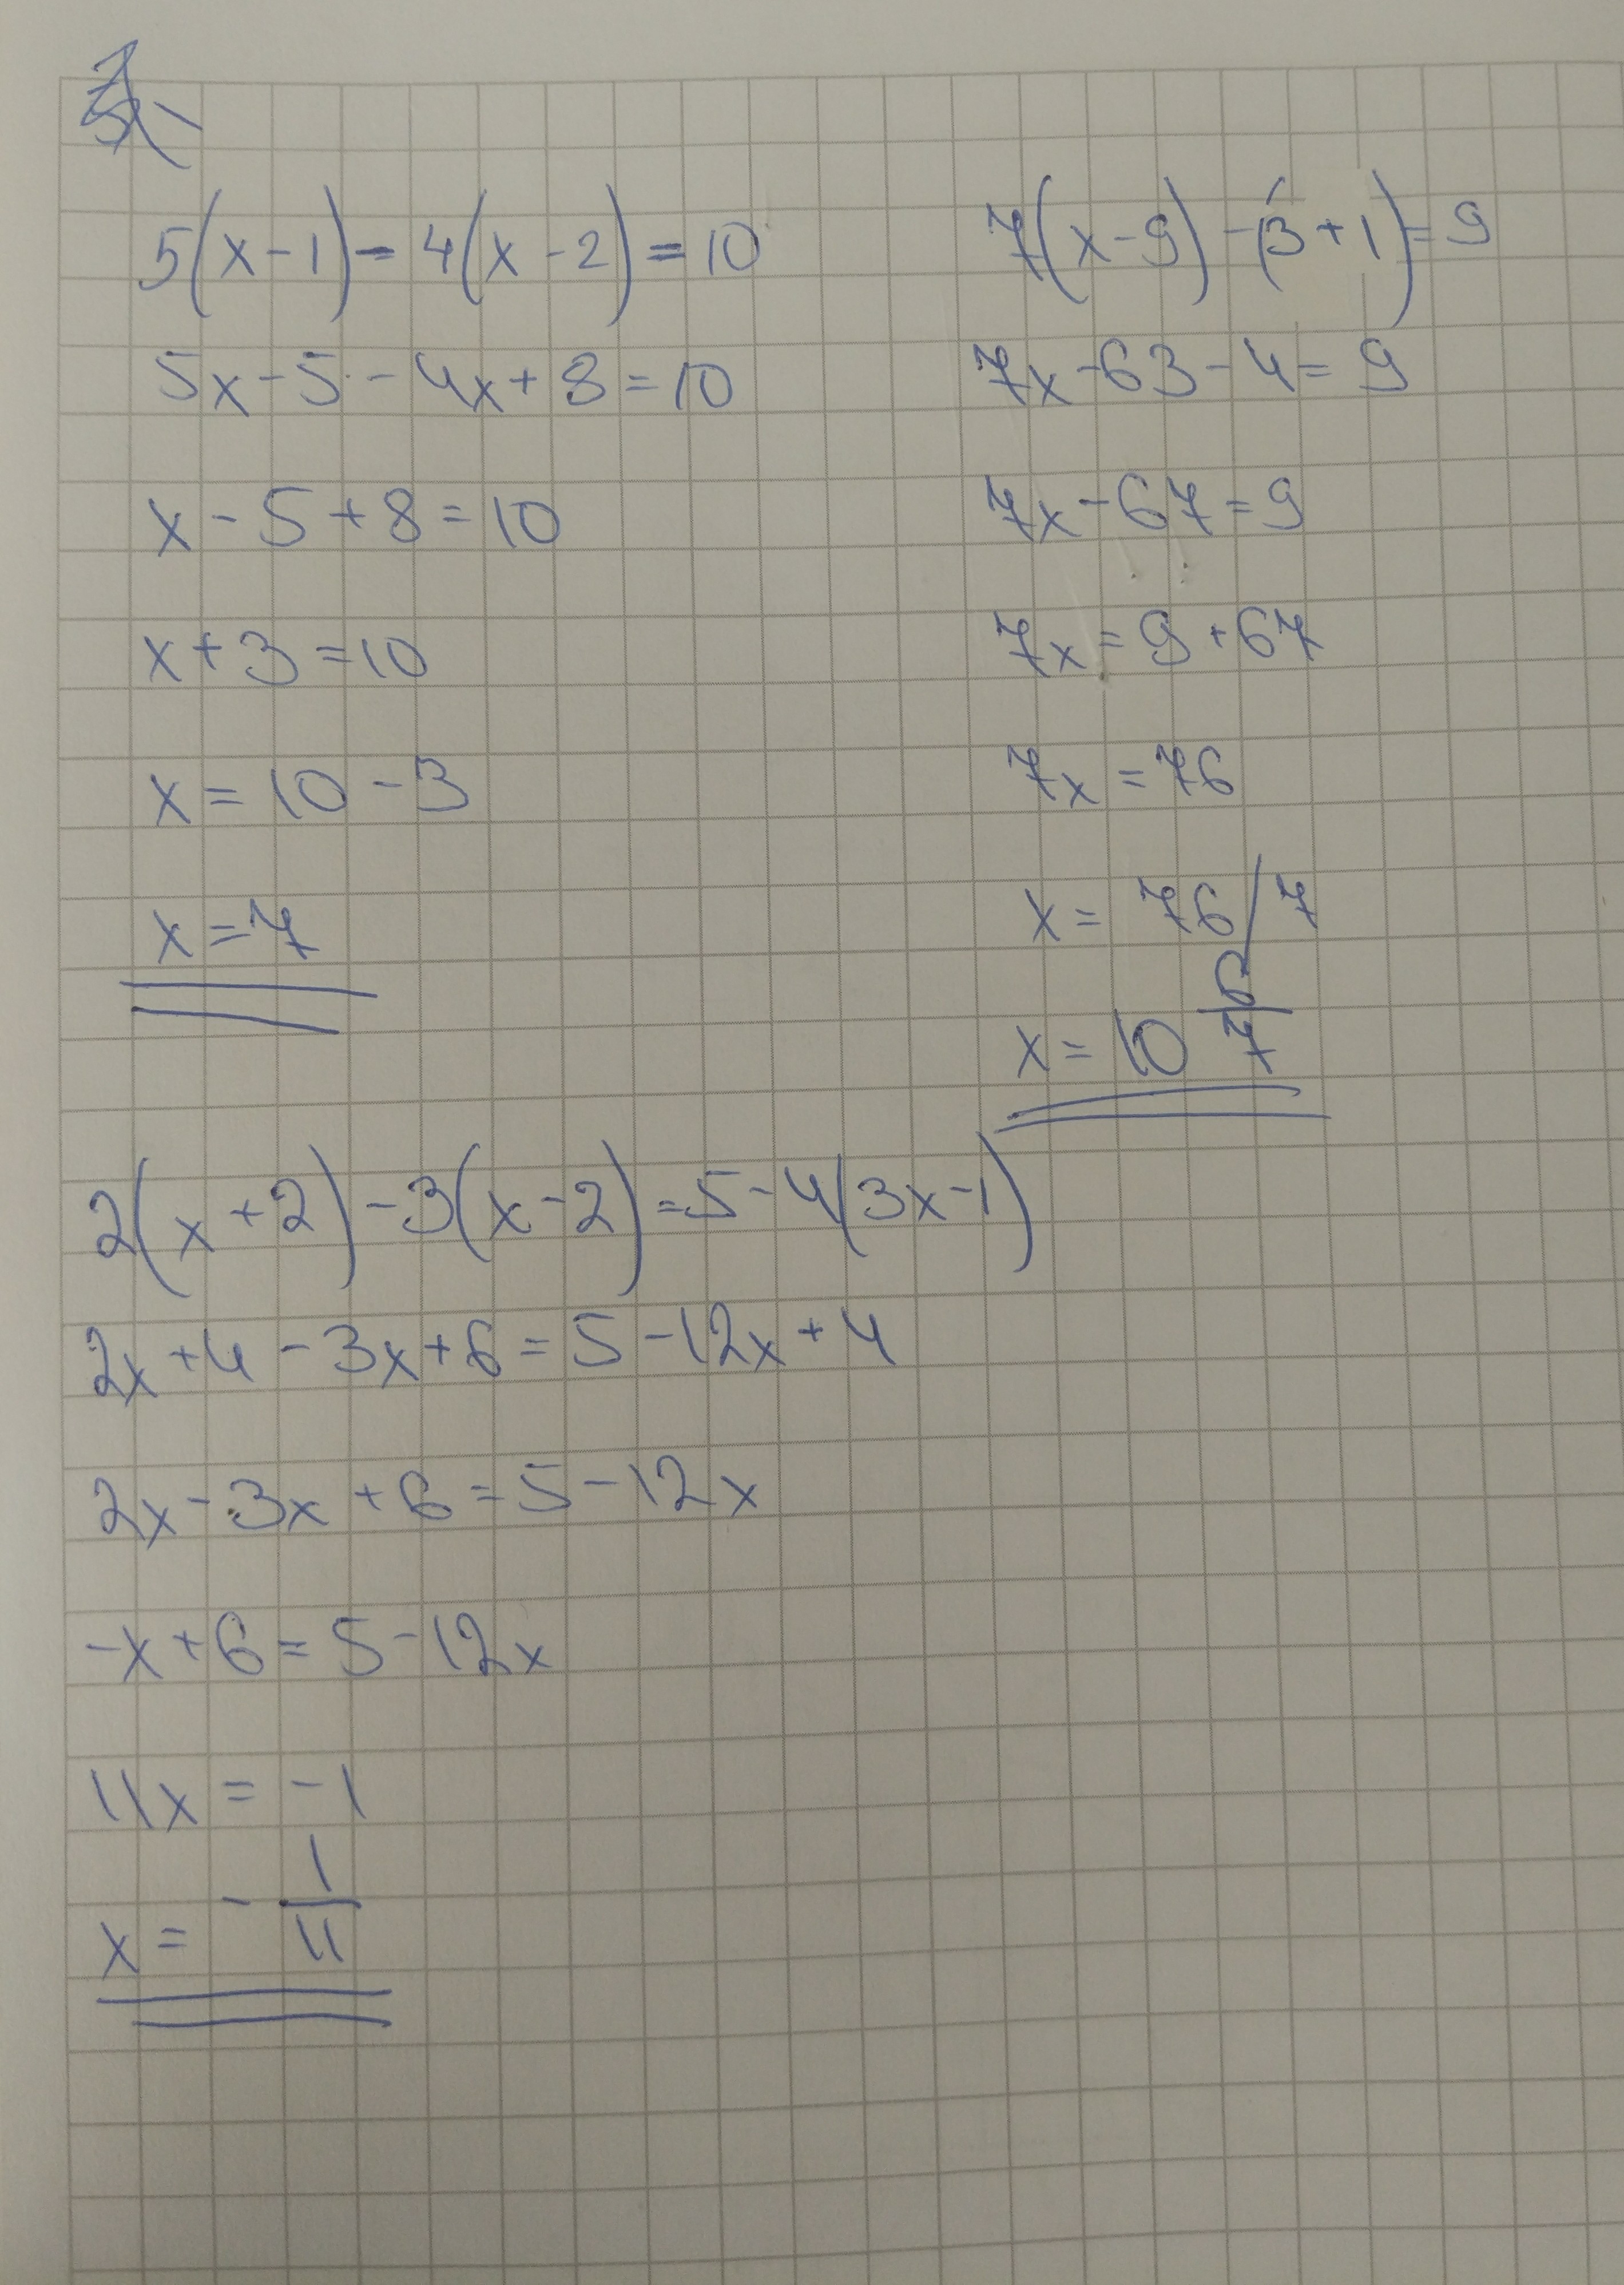 5(x-1)-4(x-2)=10
5x-5-4x+8=10
x-5+8=10
x+3=10
x=10-3
x=7
7(x-9)-(3+1)=9
7x-63-4=9
7x-67=9
7x=9+67
7x=76
x=76/7
x=10 6/7
2(x+2)-3(x-2)=5-4(3x-1)
2x+4-3x+6=5-12x+4
2x-3x+6=5-12x
-x+6=5-12x
11x=-1
x=-1/11